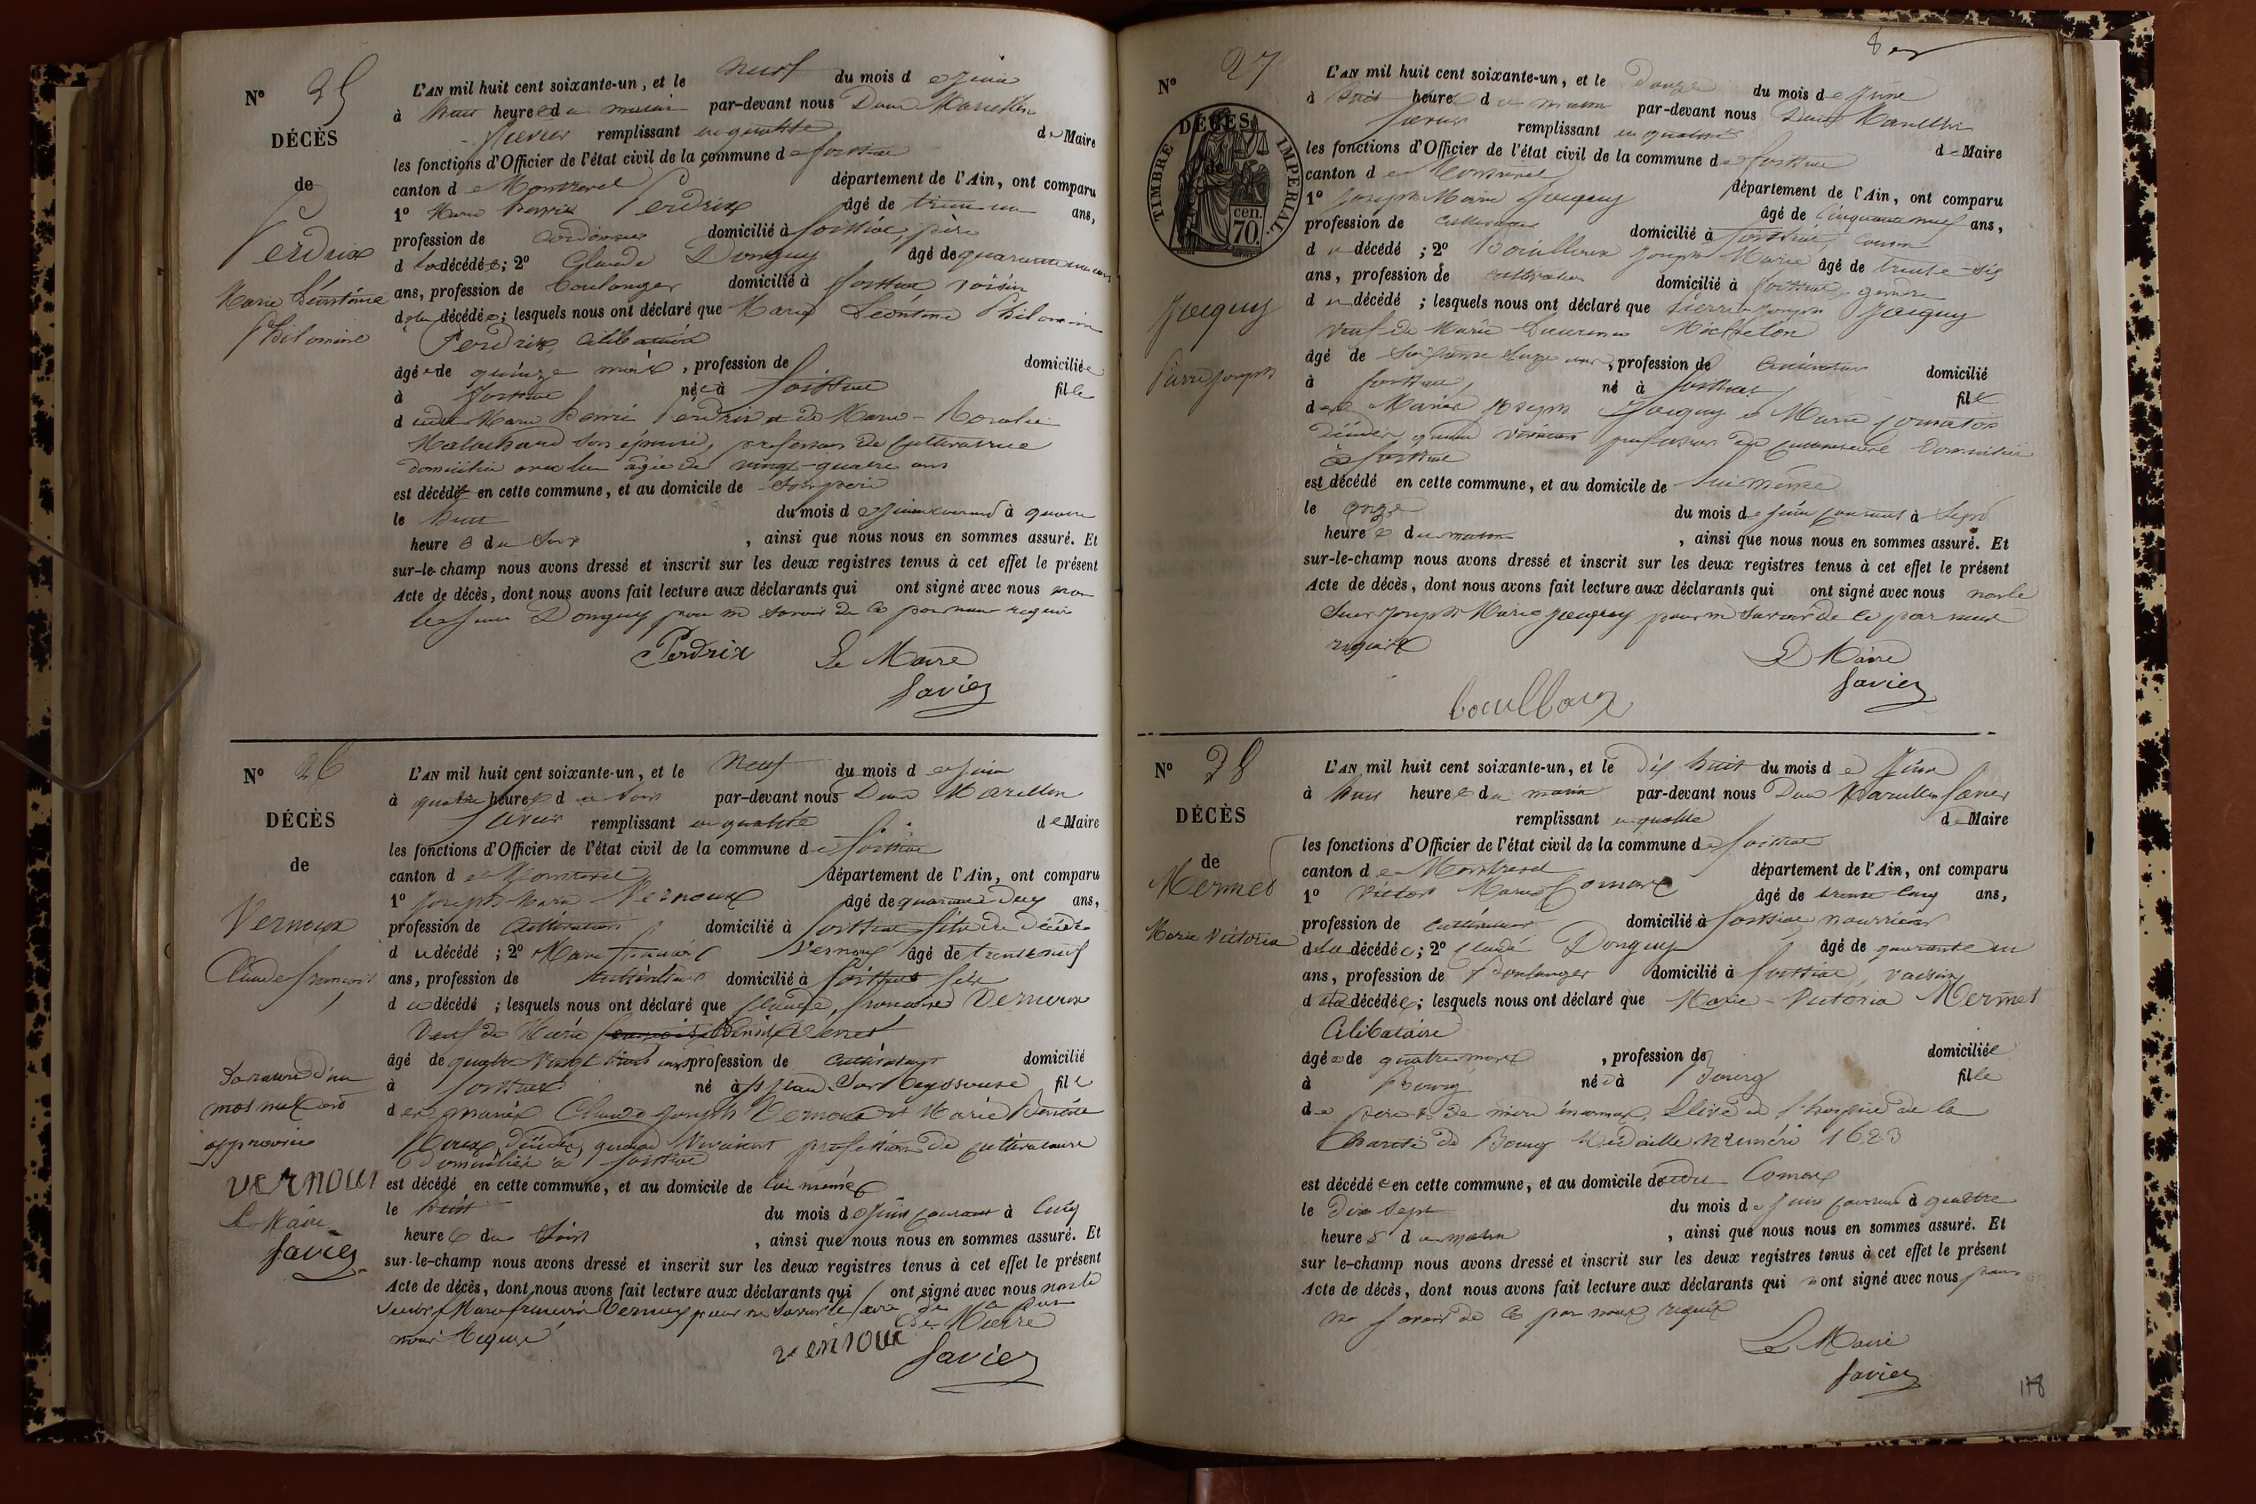 N° 25
DÉCÈS
de
Perdrix
Marie Léontine
Philomine
L'AN mil huit cent soixante-un, et le neuf du mois de Juin
à huit heures du matin par-devant nous Marcellin
Savier remplissant en qualité de Maire
les fonctions d'Officier de l'état civil de la commune de Foissiat
canton de Montrevel département de l'Ain, ont comparu
1° Marie Henri Perdrix âgé de trente un ans,
profession de cordonnier domicilié à Foissiat, père
de la décédée; 2° Claude Donguy âgé de quarante un
ans, profession de boulanger domicilié à Foissiat voisin
de la décédée; lesquels nous ont déclaré que Marie Léontine Philomine
Perdrix, célibataire
âgée de quinze mois, profession de domiciliée
à Foissiat née à Foissiat fille
de Marie Henri Perdrix et de Marie-
son épouse, profession de cultivatrice
domiciliée avec lui âgée de vingt-quatre ans
est décédée en cette commune, et au domicile de son père
le huit du mois de Juin courant à quatre
heures du soir, ainsi que nous nous en sommes assuré. Et
sur-le-champ nous avons dressé et inscrit sur les deux registres tenus à cet effet le présent
Acte de décès, dont nous avons fait lecture aux déclarants qui ont signé avec nous non
le sieur Donguy pour ne savoir de ce par nous requis
Perdrix Le Maire
Savier
N° 26
DÉCÈS
de
Vernoux
Claude françois
La rature d'un
mot nul est
approuvée
VERNOUX
Le Maire
Savier
L'AN mil huit cent soixante-un, et le neuf du mois de Juin
à quatre heures du soir par-devant nous Marcellin
Savier remplissant en qualité de Maire
les fonctions d'Officier de l'état civil de la commune de Foissiat
canton de Montrevel département de l'Ain, ont comparu
1° Joseph Marie Vernoux âgé de quarante deux ans,
profession de cultivateur domicilié à Foissiat fils du décédé
du décédé; 2° Marie François Vernoux âgé de trente neuf
ans, profession de cultivateur domicilié à Foissiat fils
du décédé; lesquels nous ont déclaré que Claude françois Vernoux
veuf de Marie
âgé de quatre vingt trois ans profession de cultivateur domicilié
à Foissiat né à St Jean sur Reyssouze fils
des mariés Claude Joseph Vernoux et Marie
décédés, quand vivaient profession de cultivateurs
domiciliés à Foissiat
est décédé en cette commune, et au domicile de lui même
le huit du mois de Juin courant à cinq
heures du soir, ainsi que nous nous en sommes assuré. Et
sur-le-champ nous avons dressé et inscrit sur les deux registres tenus à cet effet le présent
Acte de décès, dont nous avons fait lecture aux déclarants qui ont signé avec nous non le
sieur Marie françois Vernoux pour ne savoir le faire de ce par
nous requis Le Maire
vernoux Savier
N° 27
DÉCÈS
de
TIMBRE IMPÉRIAL.
cen. 70.
Joeguy
Pierre Joseph
L'AN mil huit cent soixante-un, et le douze du mois de Juin
à huit heures du matin par-devant nous Marcellin
Savier remplissant en qualité de Maire
les fonctions d'Officier de l'état civil de la commune de Foissiat
canton de Montrevel département de l'Ain, ont comparu
1° Joseph Marie Joeguy âgé de cinquante neuf ans,
profession de cultivateur domicilié à Foissiat, cousin
du décédé; 2° Bouilloux Joseph Marie âgé de trente-six
ans, profession de cultivateur domicilié à Foissiat gendre
du décédé; lesquels nous ont déclaré que Pierre Joseph Joeguy
veuf de Marie Laurence Micheleton
âgé de soixante onze ans, profession de cultivateur domicilié
à Foissiat, né à Foissiat fils
des Mariés Joseph Joeguy et Marie
décédés quand vivaient profession de cultivateurs domiciliés
à Foissiat
est décédé en cette commune, et au domicile de lui même
le onze du mois de Juin courant à sept
heures du matin, ainsi que nous nous en sommes assuré. Et
sur-le-champ nous avons dressé et inscrit sur les deux registres tenus à cet effet le présent
Acte de décès, dont nous avons fait lecture aux déclarants qui ont signé avec nous non le
sieur Joseph Marie Joeguy pour ne savoir de ce par nous
requis
Le Maire
Savier
bouilloux
N° 28
DÉCÈS
de
Mermet
Marie Victoria
L'AN mil huit cent soixante-un, et le dix huit du mois de Juin
à huit heures du matin par-devant nous Marcellin Savier
remplissant en qualité de Maire
les fonctions d'Officier de l'état civil de la commune de Foissiat
canton de Montrevel département de l'Ain, ont comparu
1° Victor Marie Comare âgé de trente cinq ans,
profession de cultivateur domicilié à Foissiat nourricier
de la décédée; 2° Claude Donguy âgé de quarante un
ans, profession de Boulanger domicilié à Foissiat, voisin
de la décédée; lesquels nous ont déclaré que Marie-Victoria Mermet
célibataire
âgée de quatre mois, profession de domiciliée
à Bourg née à Bourg fille
de père et de mère inconnus, Elève de l'hospice de la
Charité de Bourg Médaille numéro 1623
est décédée en cette commune, et au domicile dudit Comare
le dix sept du mois de Juin courant à quatre
heures du matin, ainsi que nous nous en sommes assuré. Et
sur le-champ nous avons dressé et inscrit sur les deux registres tenus à cet effet le présent
Acte de décès, dont nous avons fait lecture aux déclarants qui n'ont signé avec nous pour
ne savoir de ce par nous requis
Le Maire
Savier
178